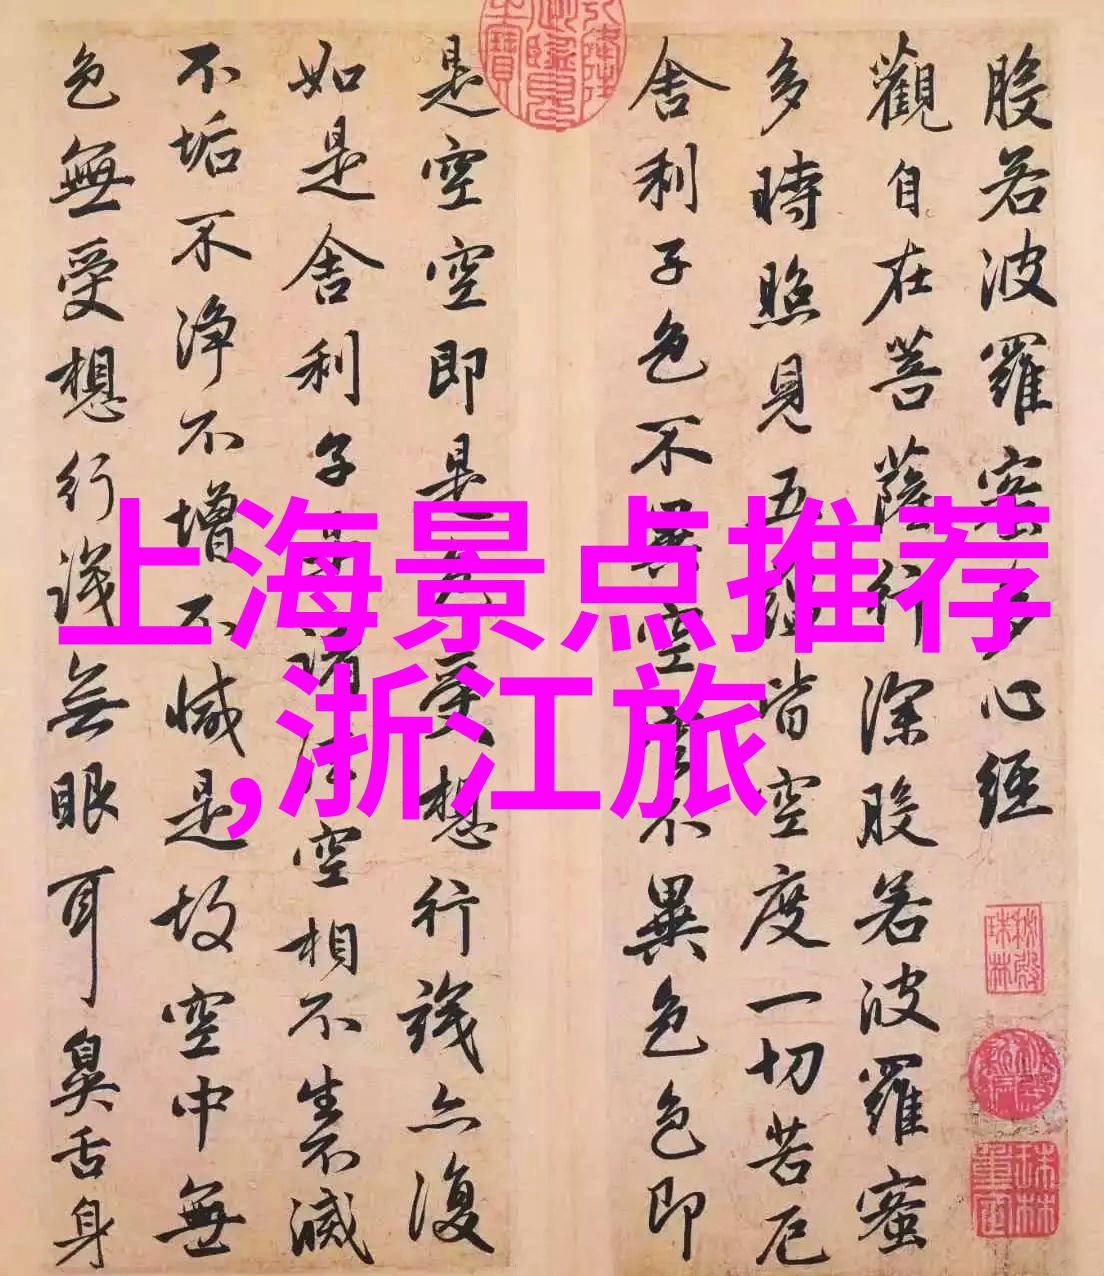 般若波羅密多心經
觀自在菩薩行深般若波羅蜜
多時照見五蘊皆空度一切苦厄
舍利子色不異空空不異色色即
是空空即是色受想行識亦復
如是舍利子是諸法空相不生不滅
不垢不淨不增不減是故空中無
色無受想行識無眼耳鼻舌身
上海景点推荐
,浙江旅